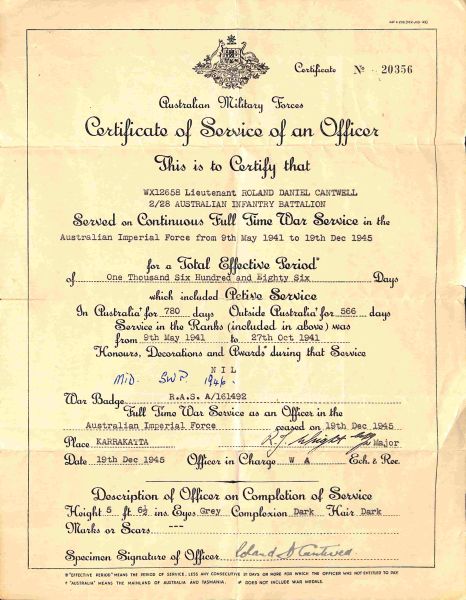 Certificate No 20356
Australian Military Forces
Certificate of Service of an Officer
This is to Certify that
WX12658 Lieutenant ROLAND DANIEL CANTWELL
2/28 AUSTRALIAN INFANTRY BATTALION
Served on Continuous Full Time War Service in the
Australian Imperial Force from 9th May 1941 to 19th Dec 1945
for a Total Effective Period*
of One Thousand Six Hundred and Eighty Six Days
which included Active Service
In Australia† for 780 days Outside Australia† for 566 days
Service in the Ranks (included in above) was
from 9th May 1941 to 27th Oct 1941
Honours, Decorations and Awards# during that Service
NIL
MID. SWP. 1946.
War Badge R.A.S. A/161492
Full Time War Service as an Officer in the
Australian Imperial Force ceased on 19th Dec 1945
Place KARRAKATTA Major
Date 19th Dec 1945 Officer in Charge W A Ech. & Rec.
Description of Officer on Completion of Service
Height 5 ft. 6½ ins. Eyes Grey Complexion Dark Hair Dark
Marks or Scars ---
Specimen Signature of Officer Roland D Cantwell
* "EFFECTIVE PERIOD" MEANS THE PERIOD OF SERVICE, LESS ANY CONSECUTIVE 21 DAYS OR MORE FOR WHICH THE OFFICER WAS NOT ENTITLED TO PAY
† "AUSTRALIA" MEANS THE MAINLAND OF AUSTRALIA AND TASMANIA. # DOES NOT INCLUDE WAR MEDALS.